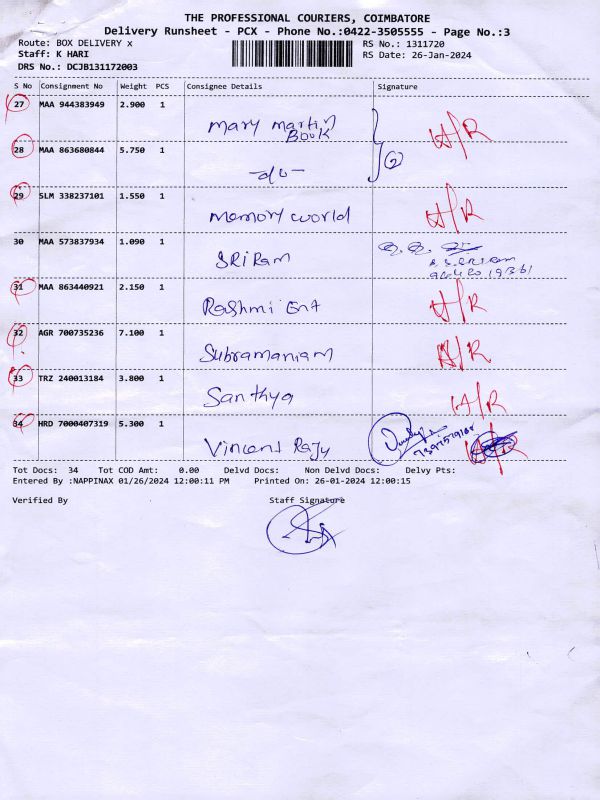 THE PROFESSIONAL COURIERS, COIMBATORE
Delivery Runsheet - PCX - Phone No.:0422-3505555 - Page No.:3
Route: BOX DELIVERY x RS No.: 1311720
Staff: K HARI RS Date: 26-Jan-2024
DRS No.: DCJB131172003
S No Consignment No Weight PCS Consignee Details Signature
27 MAA 944383949 2.900 1
Mary Martin H/R
Book
28 MAA 863680844 5.750 1 2
-do-
29 SLM 338237101 1.550 1
Memory world H/R
30 MAA 573837934 1.090 1
SRiRam
31 MAA 863440921 2.150 1
Rashmi Ent H/R
32 AGR 700735236 7.100 1
Subramaniam H/R
33 TRZ 240013184 3.800 1
Santhya H/R
34 HRD 7000407319 5.300 1
Vincent Rajy
Tot Docs: 34 Tot COD Amt: 0.00 Delvd Docs: Non Delvd Docs: Delvy Pts:
Entered By :NAPPINAX 01/26/2024 12:00:11 PM Printed On: 26-01-2024 12:00:15
Verified By Staff Signature